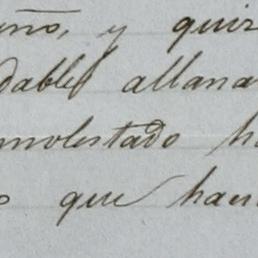 eño, y quiz
dables allana
molestado ha
o que han